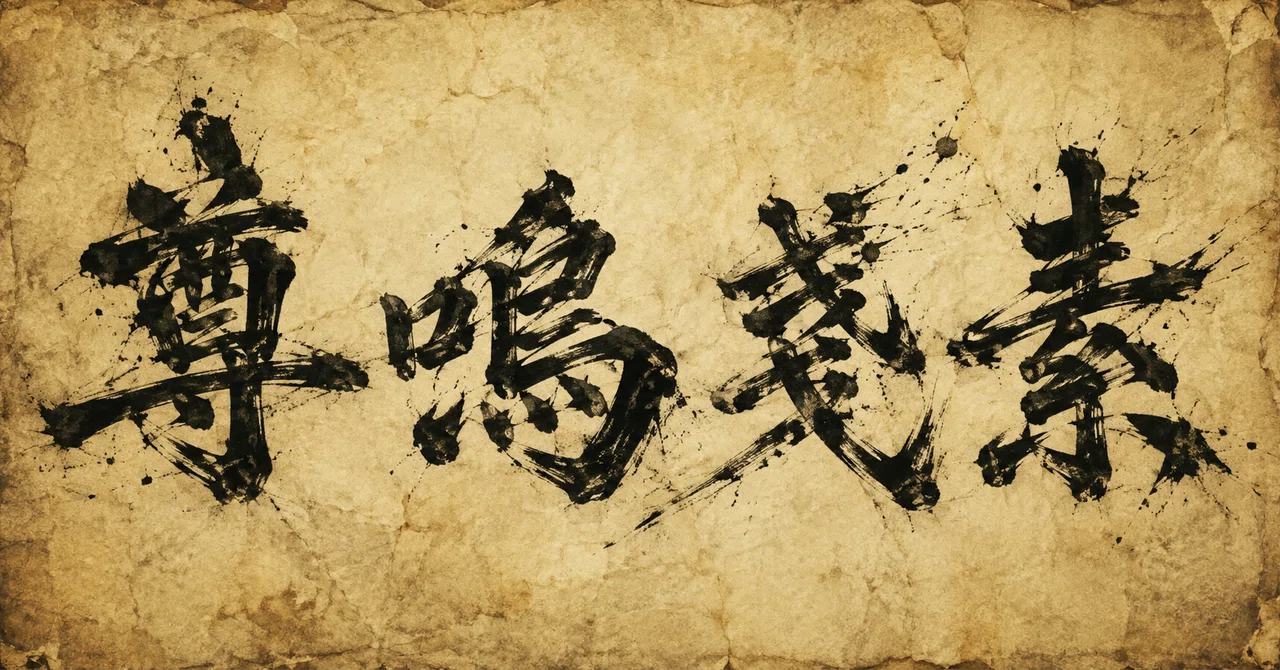 尊鳴戔素